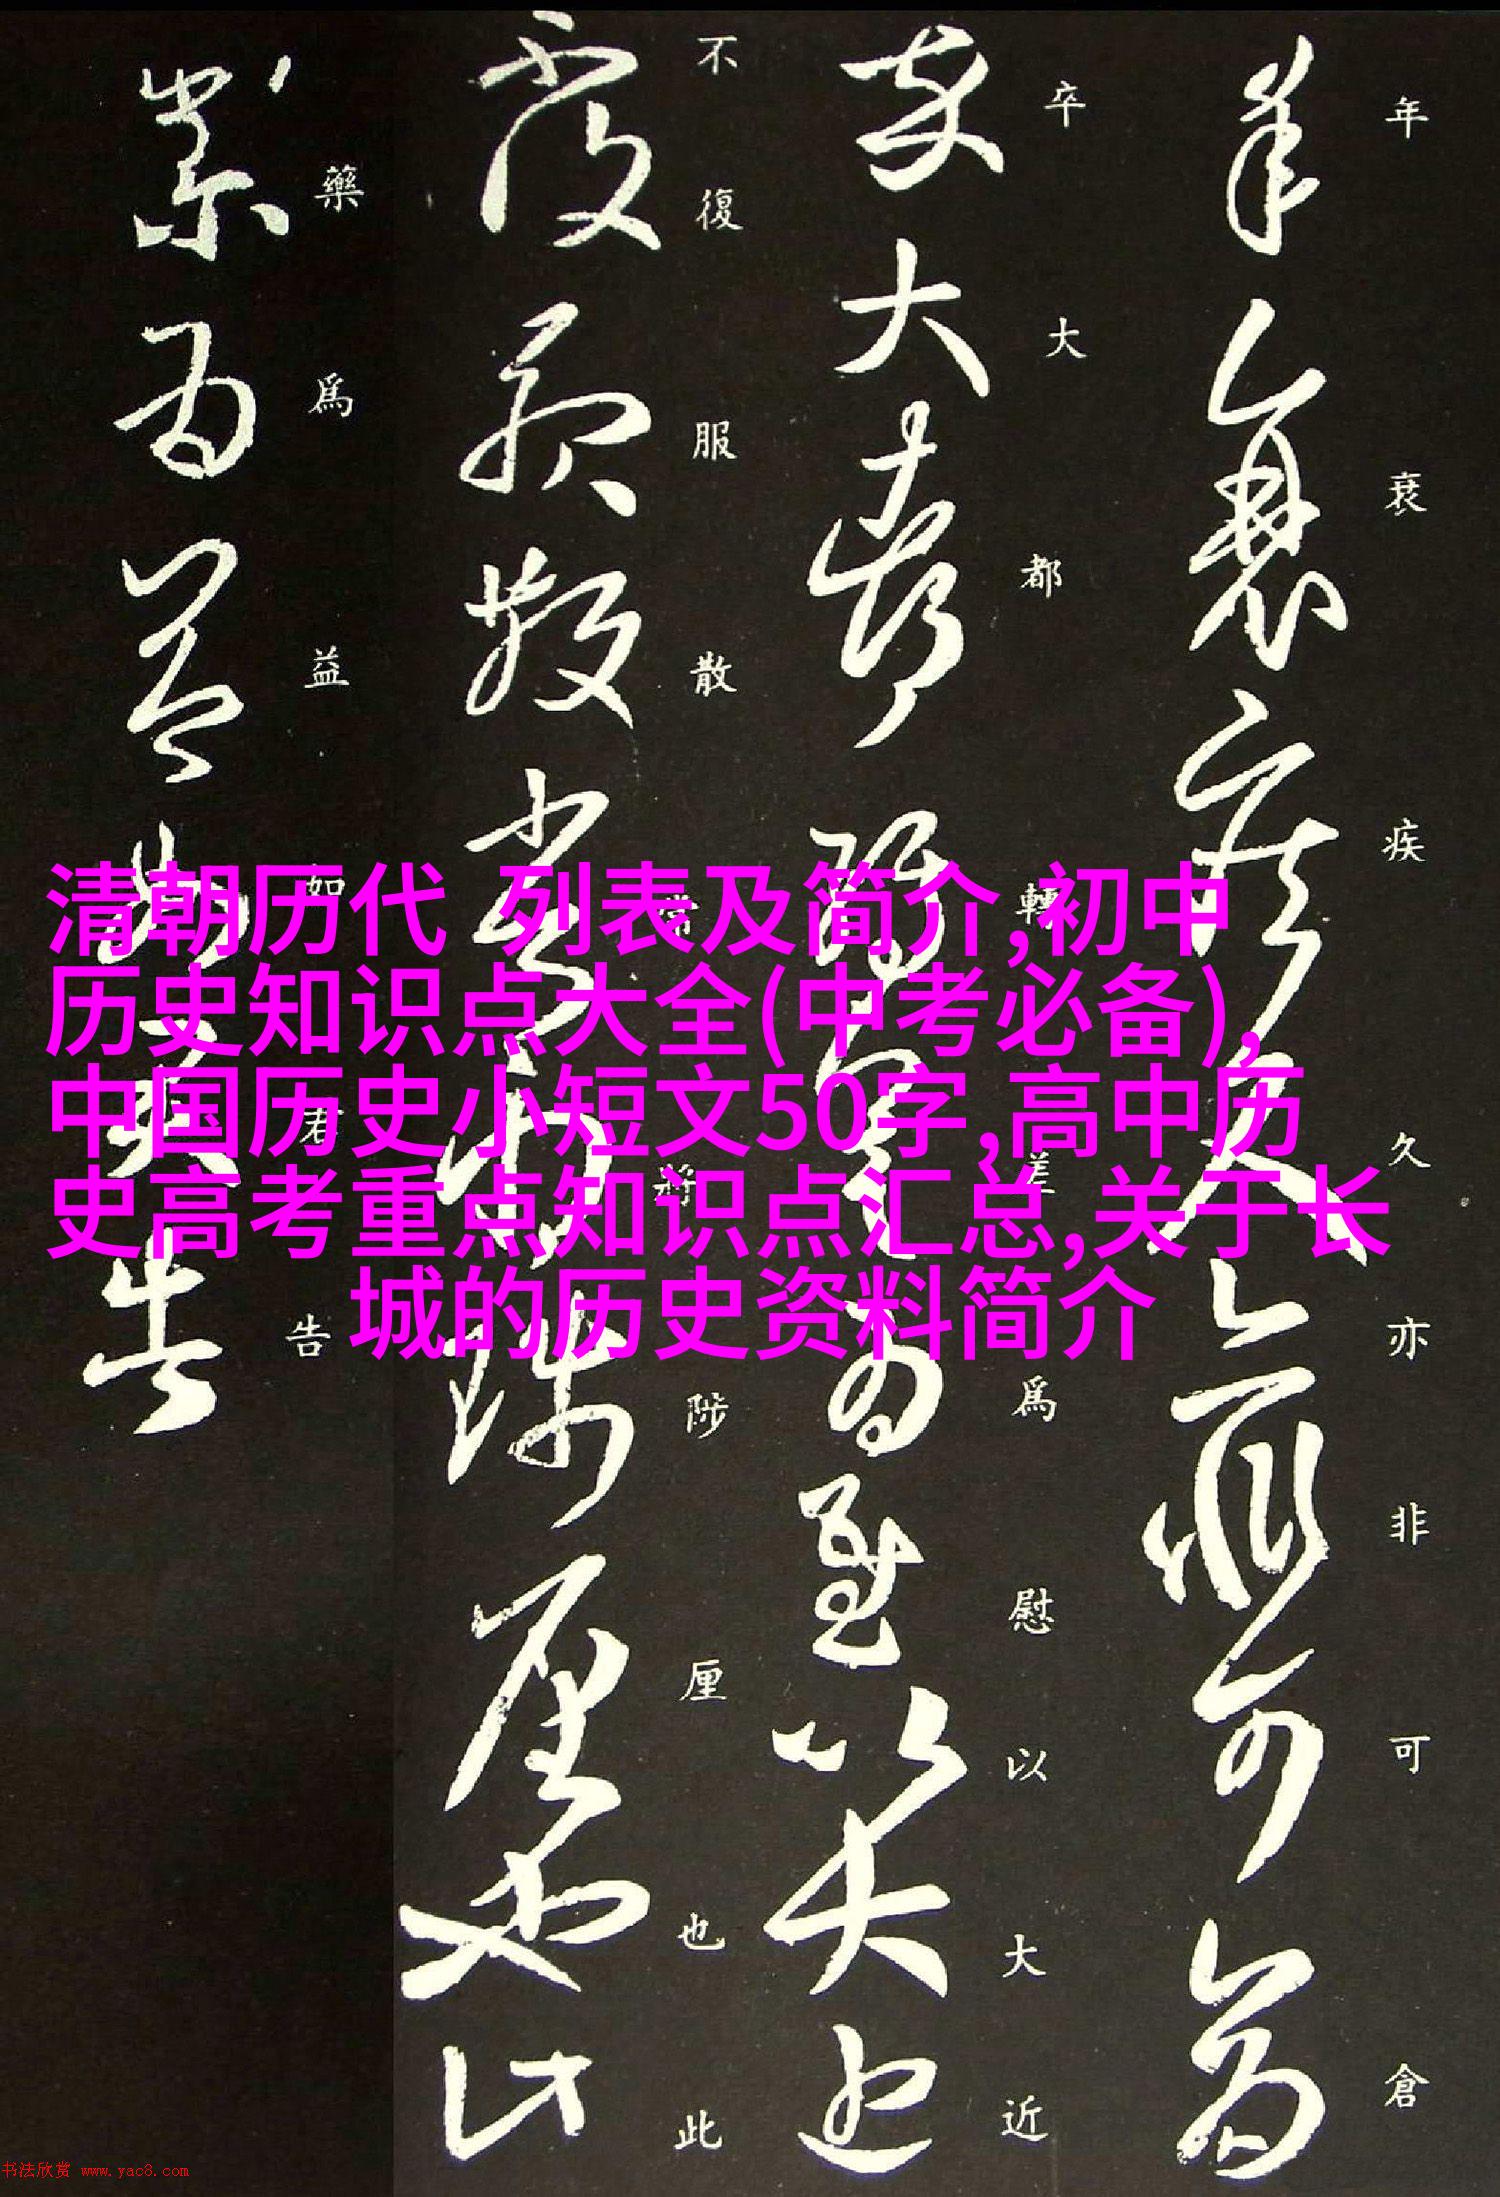 年衰疾久亦非可倉
卒大都轉差爲慰以大近
不復服散常將陟厘也此
藥爲益如君告
清朝历代 列表及简介,初中
历史知识点大全(中考必备),
中国历史小短文50字,高中历
史高考重点知识点汇总,关于长
城的历史资料简介
书法欣赏 www.yac8.com